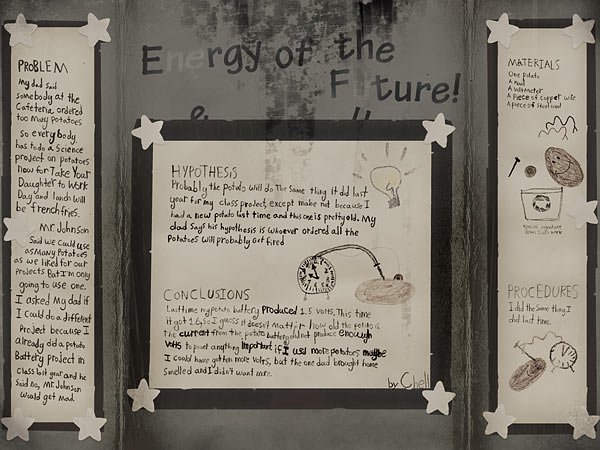 Energy of the
F ture!
PROBLEM
My dad said
somebody at the
Cafeteria ordered
too many potatoes
So every body
has to do a science
project on potatoes
now for Take Your
Daughter to Work
Day and lunch will
be french fries.
Mr Johnson
Said we could use
as many Potatoes
as we liked for our
Projects But I'm only
going to use one.
I asked My dad if
I could do a different
Project because I
already did a potato
Battery project in
class last year and he
said no, Mr. Johnson
would get mad.
HYPOTHESIS
Probably the potato will do The same thing it did last
year for my class project, except maybe not because I
had a new potato last time and this one is pretty old. My
dad says his hypothesis is whoever ordered all the
Potatoes will probably get fired
CONCLUSIONS
Last time my potato battery produced 1.5 volts. This time
it got 1.6, so I guess it doesn't matter how old the potato is.
The current from the potato battery did not produce enough
volts to power anything important. if I used more potatoes maybe
I could have gotten more volts, but the one dad brought home
smelled and I didn't want more.
by Chell
MATERIALS
One potato
A nail
A voltmeter
A piece of copper wire
A piece of steel wool
special ingredient
from Dad's work
PROCEDURES
I did the Same Thing I
did last time.